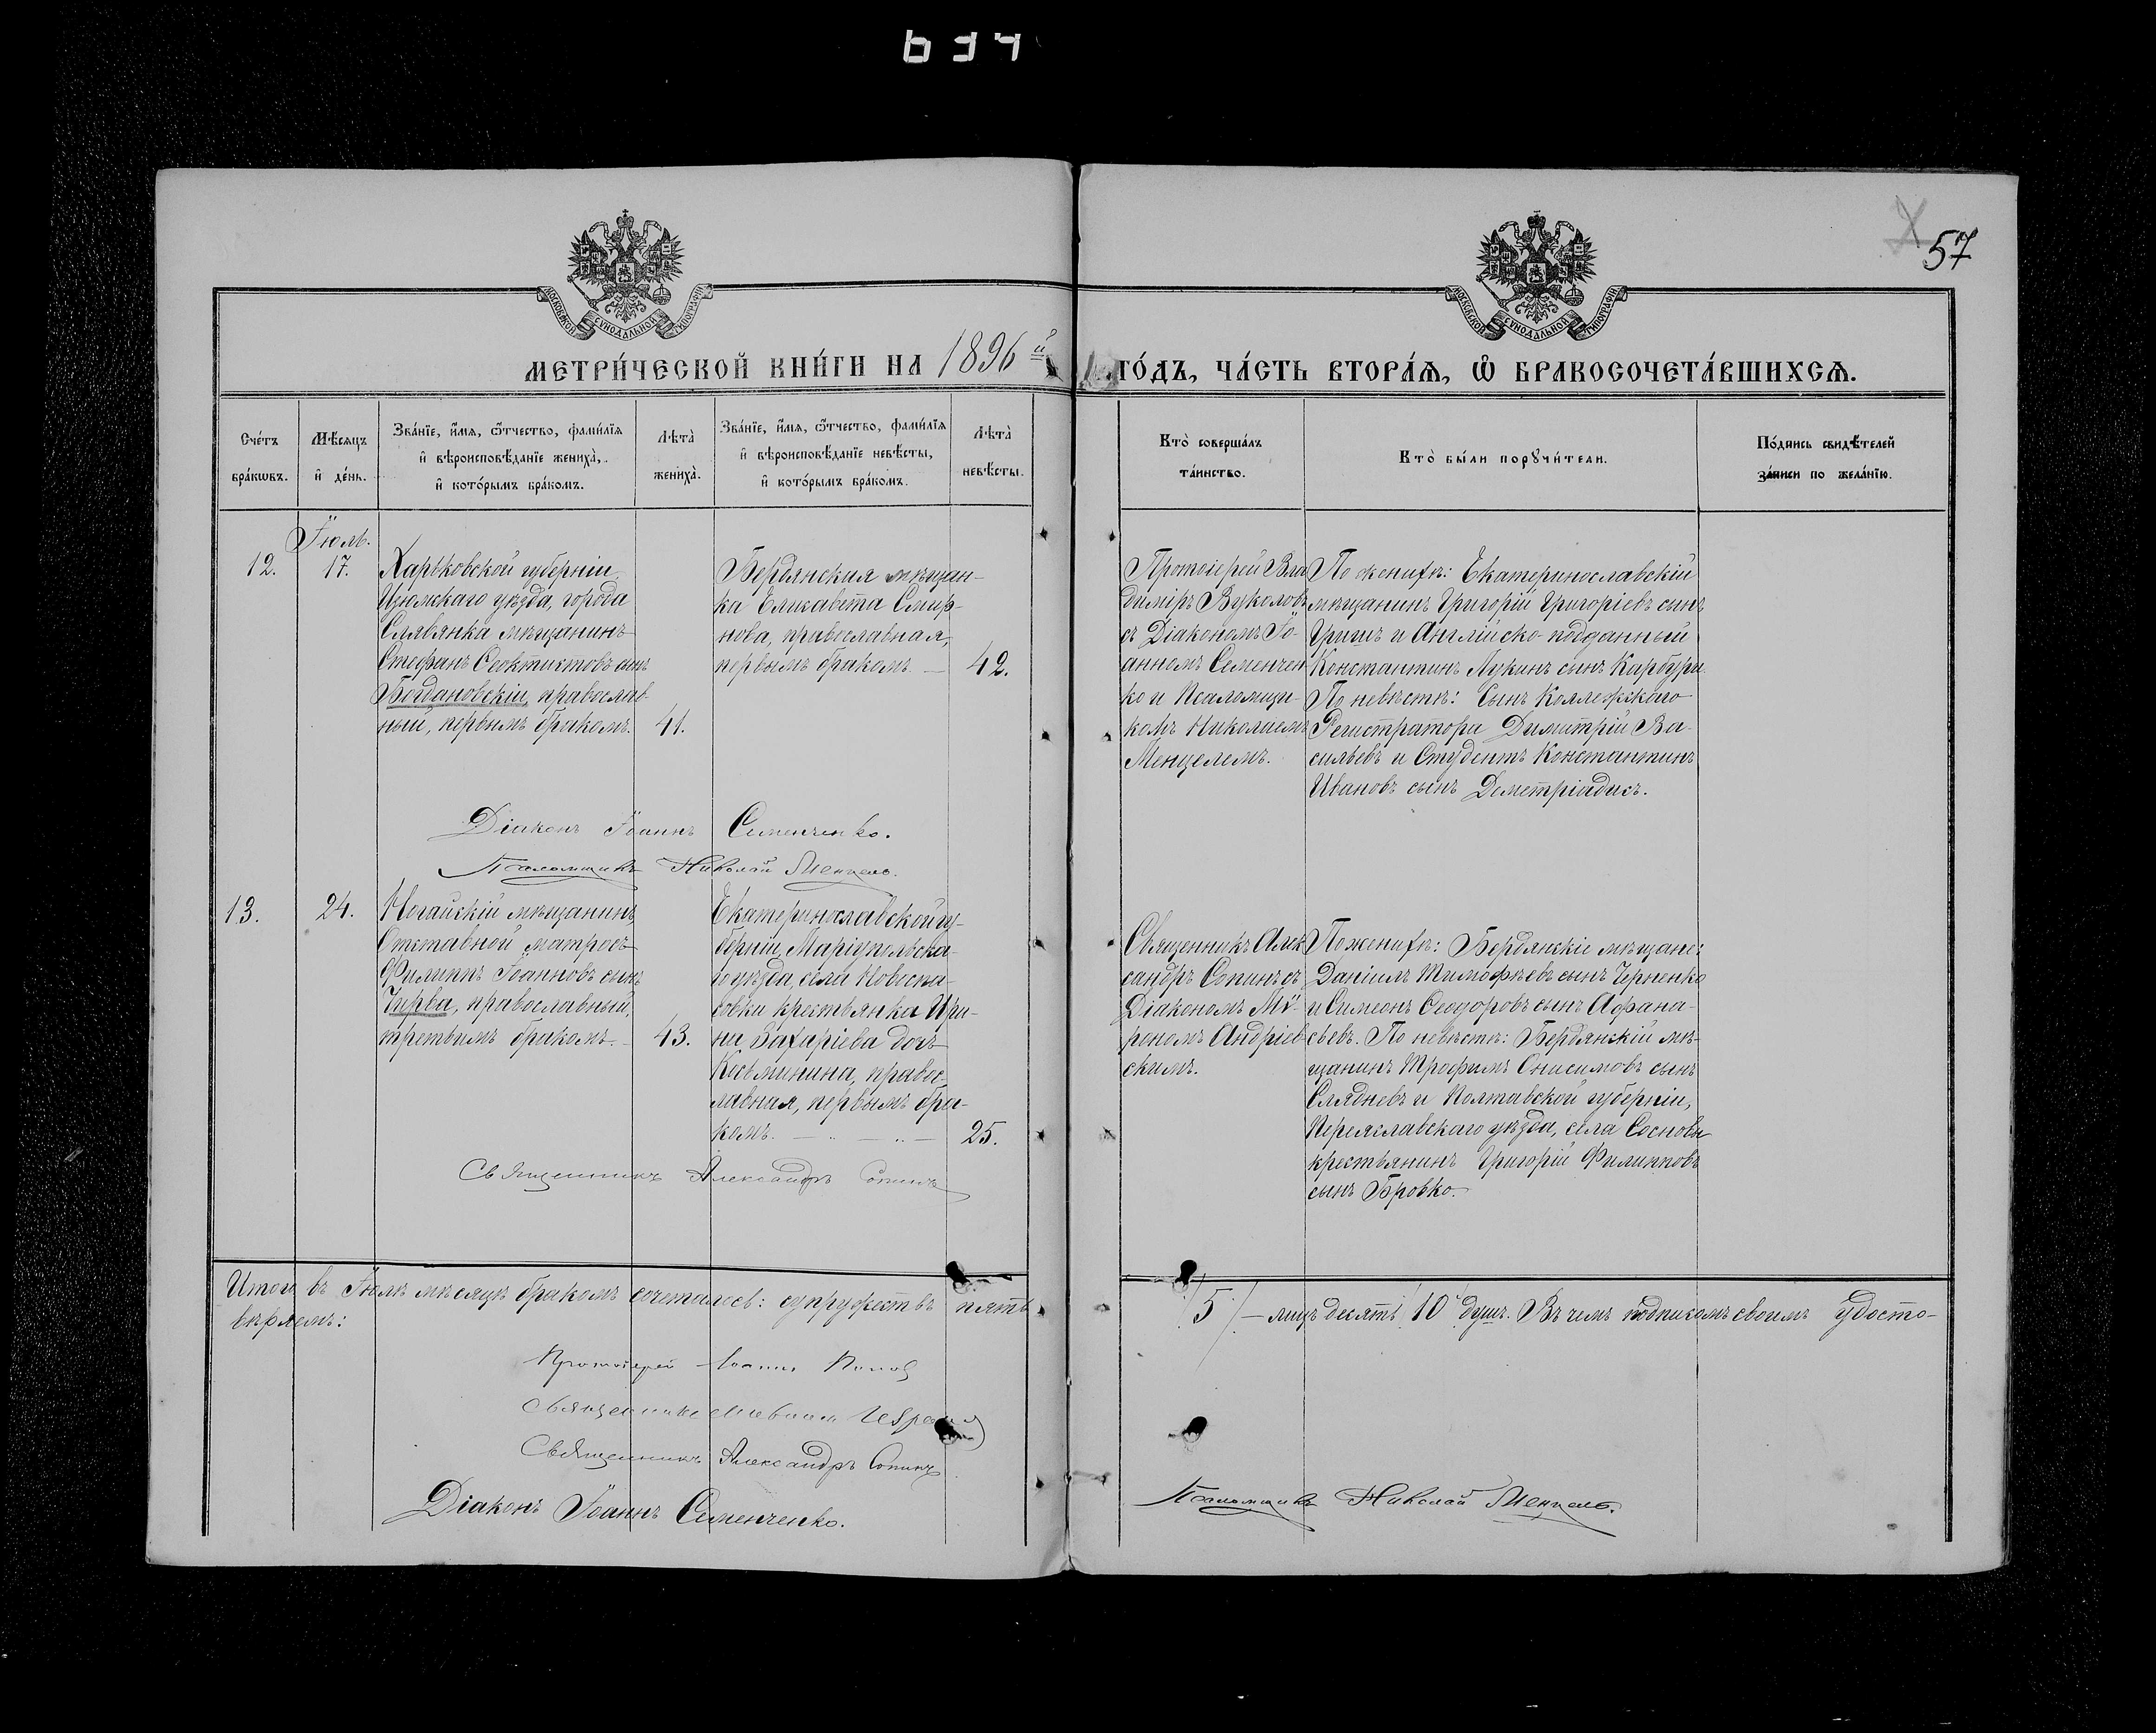 634
57
МОСКОВСКОЙ СѴНОДАЛЬНОЙ ТИПОГРАФІИ
МОСКОВСКОЙ СѴНОДАЛЬНОЙ ТИПОГРАФІИ
МЕТРИ́ЧЕСКОЙ КНИ́ГИ НА 1896й ГО́ДЪ, ЧА́СТЬ ВТОРА́Ѧ, Ѡ҆ БРАКОСОЧЕТА́ВШИХСѦ.
Сче́тъ
бра́кωвъ.
Мѣ́сѧцъ
и҆ де́нь.
Зва́нїе, и҆́мѧ, ѻ҆́тчество, фами́лїѧ
и҆ вѣроисповѣ́данїе жениха̀,
и҆ кото́рымъ бра́комъ.
Лѣта̀
жениха̀.
Зва́нїе, и҆́мѧ, ѻ҆́тчество, фами́лїѧ
и҆ вѣроисповѣ́данїе невѣ́сты,
и҆ кото́рымъ бра́комъ.
Лѣта̀
невѣ́сты.
Кто̀ соверша́лъ
та́инство.
Кто̀ бы́ли порꙋчи́тели.
По́дпись свидѣ́телей
за́писи по жела́нїю.
12.
Іюль.
17.
Харьковской губерніи
Изюмскаго уѣзда, города
Славянка мѣщанинъ
Стефанъ Ѳеоктистовъ сынъ
Богдановскій, православ-
ный, первымъ бракомъ.
41.
Бердянская мѣщан-
ка Елисавета Смир-
нова, православная,
первымъ бракомъ. —
42.
Протоіерей Вла
димиръ Вуколовъ
съ Діакономъ Іо-
анномъ Семенчен
ко и Псаломщи-
комъ Николаемъ
Менцелемъ.
По женихѣ: Екатеринославскій
мѣщанинъ Григорій Григоріевъ сынъ
Гришъ и Англійско-подданный
Константинъ Лукинъ сынъ Карбури.
По невѣстѣ: Сынъ Коллежскаго
Регистратора Димитрій Ва-
сильевъ и Студентъ Константинъ
Ивановъ сынъ Деметріадисъ.
Діаконъ Іоаннъ Семенченко.
Псаломщикъ Николай Менцель.
13.
24.
Ногайскій мѣщанинъ
Отставной матросъ
Филиппъ Іоанновъ сынъ
Чирва, православный,
третьимъ бракомъ.
43.
Екатеринославской гу-
берніи, Маріупольска-
го уѣзда, села Новоспа-
совки крестьянка Ири-
на Захаріева дочь
Косьминина, правос-
лавная, первымъ бра-
комъ.
25.
Священникъ Алек
сандръ Сопинъ съ
Діакономъ Мѵ-
рономъ Андріев-
скимъ.
По женихѣ: Бердянскіе мѣщане:
Даніилъ Тимофѣевъ сынъ Черненко
и Симеонъ Ѳеодоровъ сынъ Афана-
сьевъ. По невѣстѣ: Бердянскій мѣ-
щанинъ Трофимъ Онисимовъ сынъ
Слядневъ и Полтавской губерніи,
Переяславскаго уѣзда, села Сосновы
крестьянинъ Григорій Филипповъ
сынъ Бровко.
Священникъ Александръ Сопинъ
Итого въ Іюлѣ мѣсяцѣ бракомъ сочеталось: супружествъ пять /5/ — лицъ десять /10/ душъ. Въ чемъ подписомъ своимъ удосто-
вѣряемъ:
Протоіерей Іоаннъ Попов
Священникъ
Священникъ Александръ Сопинъ
Діаконъ Іоаннъ Семенченко.
Псаломщикъ Николай Менцель.